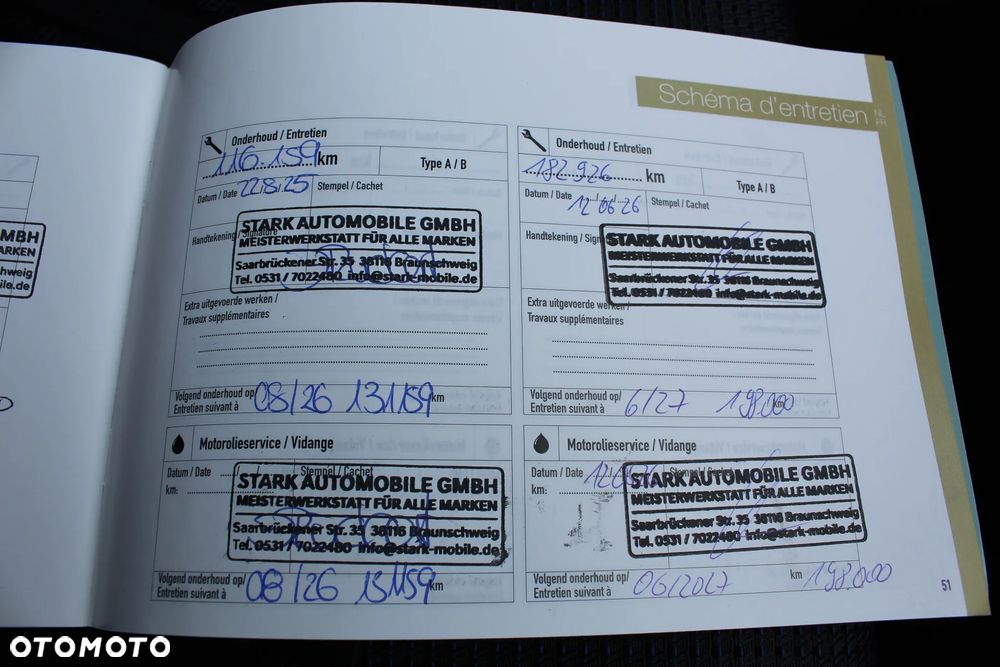 Schéma d'entretien
NL
FR
Onderhoud / Entretien
116.159 km
Type A / B
Datum / Date 22.8.25
Stempel / Cachet
Handtekening / Signature
STARK AUTOMOBILE GMBH
MEISTERWERKSTATT FÜR ALLE MARKEN
Saarbrückener Str. 35 38116 Braunschweig
Tel. 0531 / 7022480 info@stark-mobile.de
Extra uitgevoerde werken /
Travaux supplémentaires
Volgend onderhoud op/
Entretien suivant à
08/26 131159 km
Motorolieservice / Vidange
Datum / Date
Stempel / Cachet
km:
STARK AUTOMOBILE GMBH
MEISTERWERKSTATT FÜR ALLE MARKEN
Saarbrückener Str. 35 38116 Braunschweig
Tel. 0531 / 7022480 info@stark-mobile.de
Volgend onderhoud op/
Entretien suivant à
08/26 131159 km
Onderhoud / Entretien
182.926 km
Type A / B
Datum / Date 12 06 26
Stempel / Cachet
Handtekening / Sign
STARK AUTOMOBILE GMBH
MEISTERWERKSTATT FÜR ALLE MARKEN
Saarbrückener Str. 35 38116 Braunschweig
Tel. 0531 / 7022480 info@stark-mobile.de
Extra uitgevoerde werken /
Travaux supplémentaires
Volgend onderhoud op/
Entretien suivant à
6/27 198.000 km
Motorolieservice / Vidange
Datum / Date
Stempel / Cachet
km:
STARK AUTOMOBILE GMBH
MEISTERWERKSTATT FÜR ALLE MARKEN
Saarbrückener Str. 35 38116 Braunschweig
Tel. 0531 / 7022480 info@stark-mobile.de
Volgend onderhoud op/
Entretien suivant à
06/2027 km 198.000
51
OTOMOTO